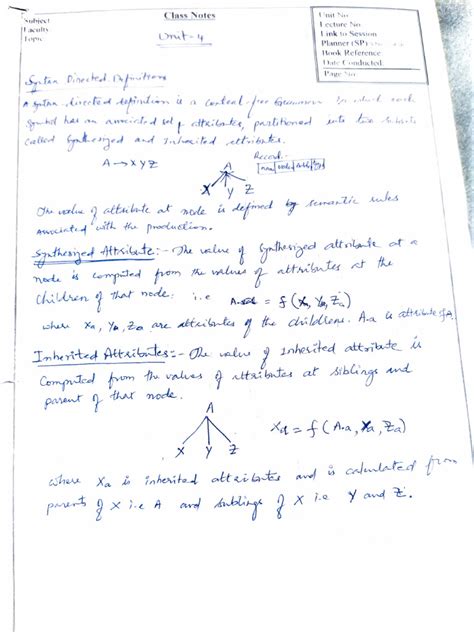 Subject
Faculty
Topic
Class Notes
Unit-4
Unit No
Lecture No
Link to Session
Planner (SP)
Book Reference
Date Conducted
Page No
Syntax Directed Definitions
A syntax-directed definition is a context-free grammar in which each
symbol has an associated set of attributes, partitioned into two subsets
called Synthesized and Inherited attributes.
A → X Y Z
Record:-
A
X Y Z
The value of attribute at node is defined by semantic rules
associated with the production.
Synthesized Attribute:- The value of synthesized attribute at a
node is computed from the values of attributes at the
children of that node: i.e = f (Xa, Ya, Za)
where Xa, Ya, Za are attributes of the childrens. A.a is attribute of A.
Inherited Attributes:- The value of inherited attribute is
computed from the values of attributes at siblings and
parent of that node.
A
X Y Z
Xa = f (A.a, Ya, Za)
where Xa is inherited attributes and is calculated from
parents of X i.e A and siblings of X i.e Y and Z.